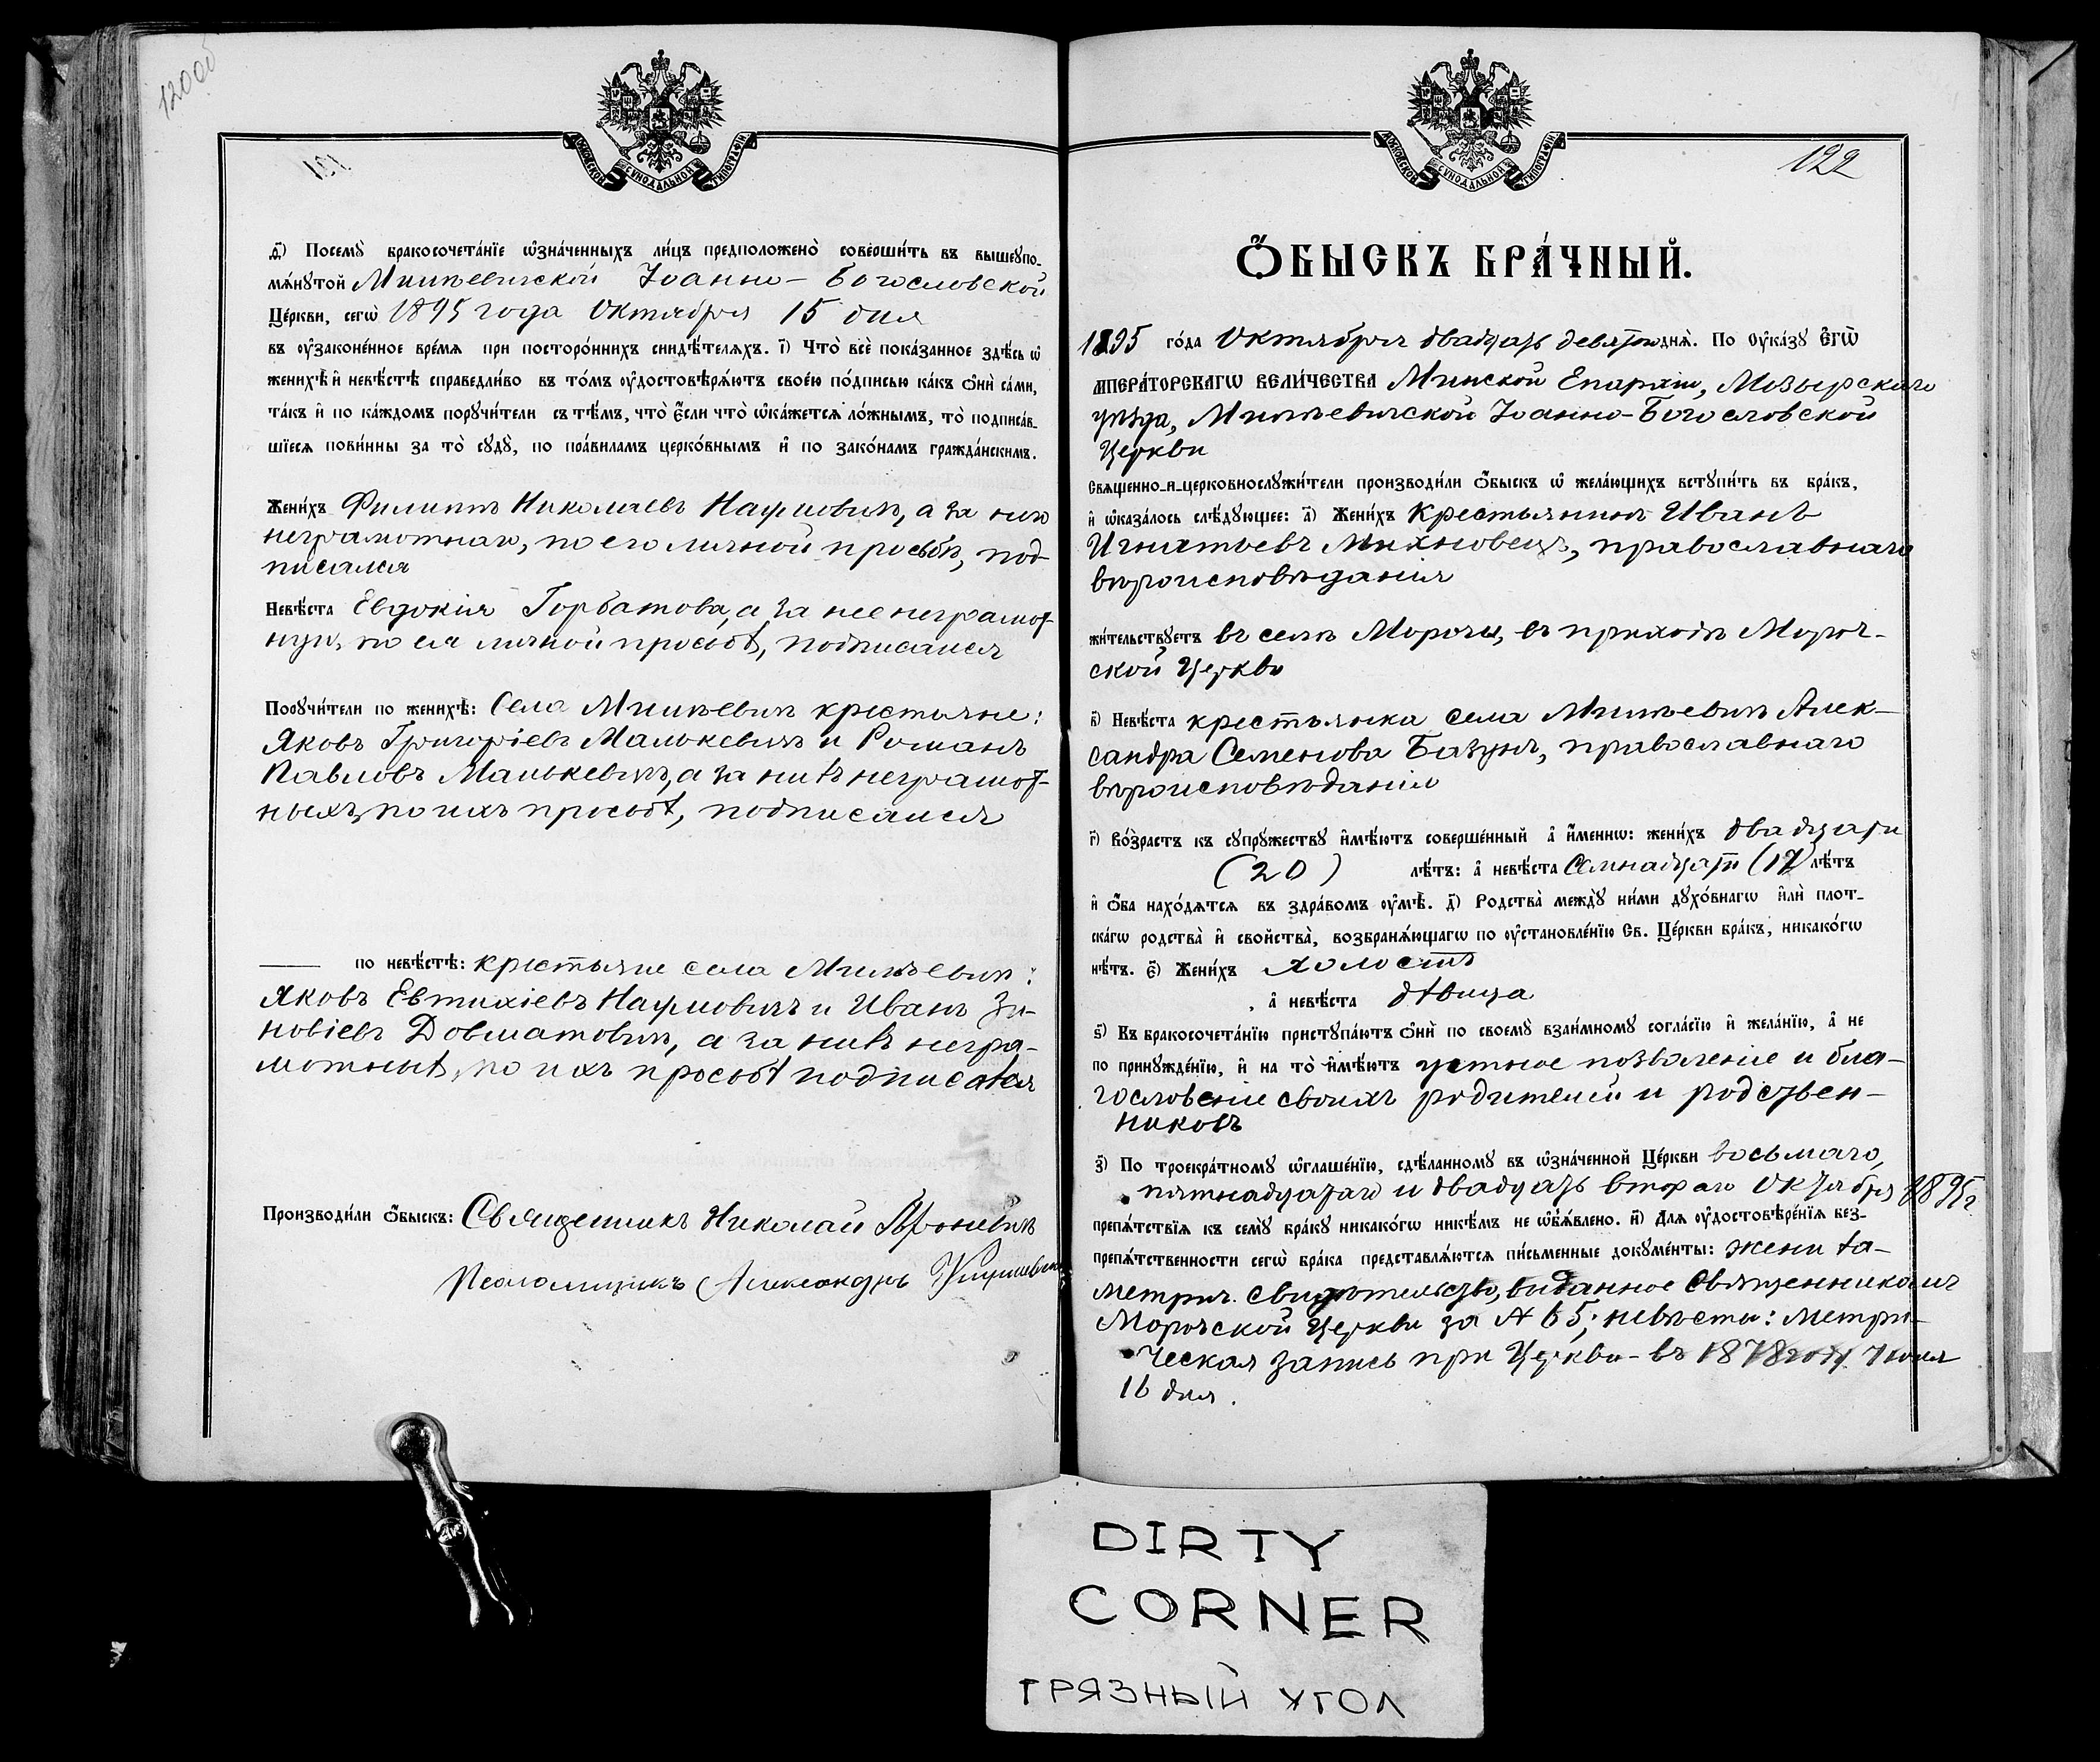 120об
121
МОСКОВСКОЙ СѴНОДАЛЬНОЙ ТИПОГРАФІИ
д҃) Посемꙋ̀ бракосочета́нїе ѡ҆зна́ченныхъ ли́цъ предположено̀ соверши́ть въ вышеꙋпо-
мѧ́нꙋтой Милѣевичской Іоанно-Богословской
Це́ркви, сегѡ̀ 1895 года Октября 15 дня
въ оу҆законе́нное вре́мѧ при посторо́ннихъ свидѣ́телѧхъ. і҃) Что̀ всѐ пока́занное здѣ́сь ѡ҆
женихѣ̀ и҆ невѣ́стѣ справедли́во въ то́мъ оу҆достовѣрѧ́ютъ свое́ю по́дписью ка́къ ѻ҆нѝ са́ми,
та́къ и҆ по ка́ждомъ порꙋчи́тели съ тѣ́мъ, что̀ є҆́сли что̀ ѡ҆ка́жетсѧ ло́жнымъ, то̀ подписа́в-
шїесѧ пови́нны за то̀ сꙋдꙋ̀, по пра́виламъ церко́внымъ и҆ по зако́намъ гражда́нскимъ.
Жени́хъ Филиппъ Николаевъ Наумовичъ, а за него
неграмотнаго, по его личной просьбѣ, под-
писался
Невѣ́ста Евдокія Горбатова, а за нее неграмот-
ную, по ея личной просьбѣ, подписался
Порꙋчи́тели по женихѣ̀: Села Милѣевичъ крестьяне:
Яковъ Григоріевъ Малькевичъ и Романъ
Павловъ Малькевичъ, а за нихъ неграмот-
ныхъ, по ихъ просьбѣ, подписался
— по невѣ́стѣ: крестьяне села Милѣевичъ:
Яковъ Евтихіевъ Наумовичъ и Иванъ Зи-
новіевъ Довматовичъ, а за нихъ негра-
мотныхъ, по ихъ просьбѣ подписался
Производи́ли ѻ҆́быскъ: Священникъ Николай
Псаломщикъ Александръ
122
МОСКОВСКОЙ СѴНОДАЛЬНОЙ ТИПОГРАФІИ
Ѻ҆́БЫСКЪ БРА́ЧНЫЙ.
1895 го́да Октября двадцать девятаго днѧ̀. По Оу҆ка́зꙋ Є҆гѡ̀
и҆мпера́торскагѡ вели́чества Минской Епархіи, Мозырскаго
уѣзда, Милѣевичской Іоанно-Богословской
Церкви
Свѧщенно-и-церковнослꙋжи́тели производи́ли ѻ҆́быскъ ѡ҆ жела́ющихъ встꙋпи́ть въ бра́къ,
и҆ ѡ҆каза́лось слѣ́дꙋющее: а҃) Жени́хъ Крестьянинъ Иванъ
Игнатьевъ Михновецъ, православнаго
вѣроисповѣданія
жи́тельствꙋетъ въ селѣ Морочи, въ приходѣ Мороч-
ской Церкви
в҃) Невѣ́ста крестьянка села Милѣевичъ Алек-
сандра Семенова Базунъ, православнаго
вѣроисповѣданія
г҃) Во́зрастъ къ сꙋпрꙋ́жествꙋ и҆мѣ́ютъ соверше́нный а҆ и҆́меннѡ: жени́хъ двадцати
(20) лѣ́тъ: а҆ невѣ́ста Семнадцати (17) лѣ́тъ
и҆ ѻ҆́ба нахо́дѧтсѧ въ здра́вомъ оу҆мѣ̀. д҃) Родства̀ междꙋ̀ ни́ми дꙋхо́внагѡ и҆лѝ плот-
ска́гѡ родства̀ и҆ свойства̀, возбранѧ́ющагѡ по оу҆становле́нїю Св. Це́ркви бра́къ, никако́гѡ
нѣ́тъ. є҃) Жени́хъ холостъ
, а҆ невѣ́ста дѣвица
ѕ҃) Къ бракосочета́нїю пристꙋпа́ютъ ѻ҆нѝ по своемꙋ̀ взаи́мномꙋ согла́сїю и҆ жела́нїю, а҆ не
по принꙋжде́нїю, и҆ на то̀ и҆мѣ́ютъ устное позволеніе и бла-
гословеніе своихъ родителей и родствен-
никовъ
з҃) По троекра́тномꙋ ѡ҆глаше́нїю, сдѣ́ланномꙋ въ ѡ҆зна́ченной Це́ркви восьмаго,
пятнадцатаго и двадцать втораго Октября 1895 г
препѧ́тствїѧ къ семꙋ̀ бра́кꙋ никако́гѡ никѣ́мъ не ѡ҆б̾ѧ́влено. и҃) Для оу҆достовѣре́нїѧ без-
препѧ́тственности сегѡ̀ бра́ка представлѧ́ютсѧ пи́сьменные докꙋме́нты: жениха-
метрич. свидѣтельство, выданное Священникомъ
Морочской Церкви за № 65; невѣсты: метри-
ческая запись при Церкви - въ 1878 году Іюня
16 дня.
DIRTY
CORNER
ГРЯЗНЫЙ УГОЛ